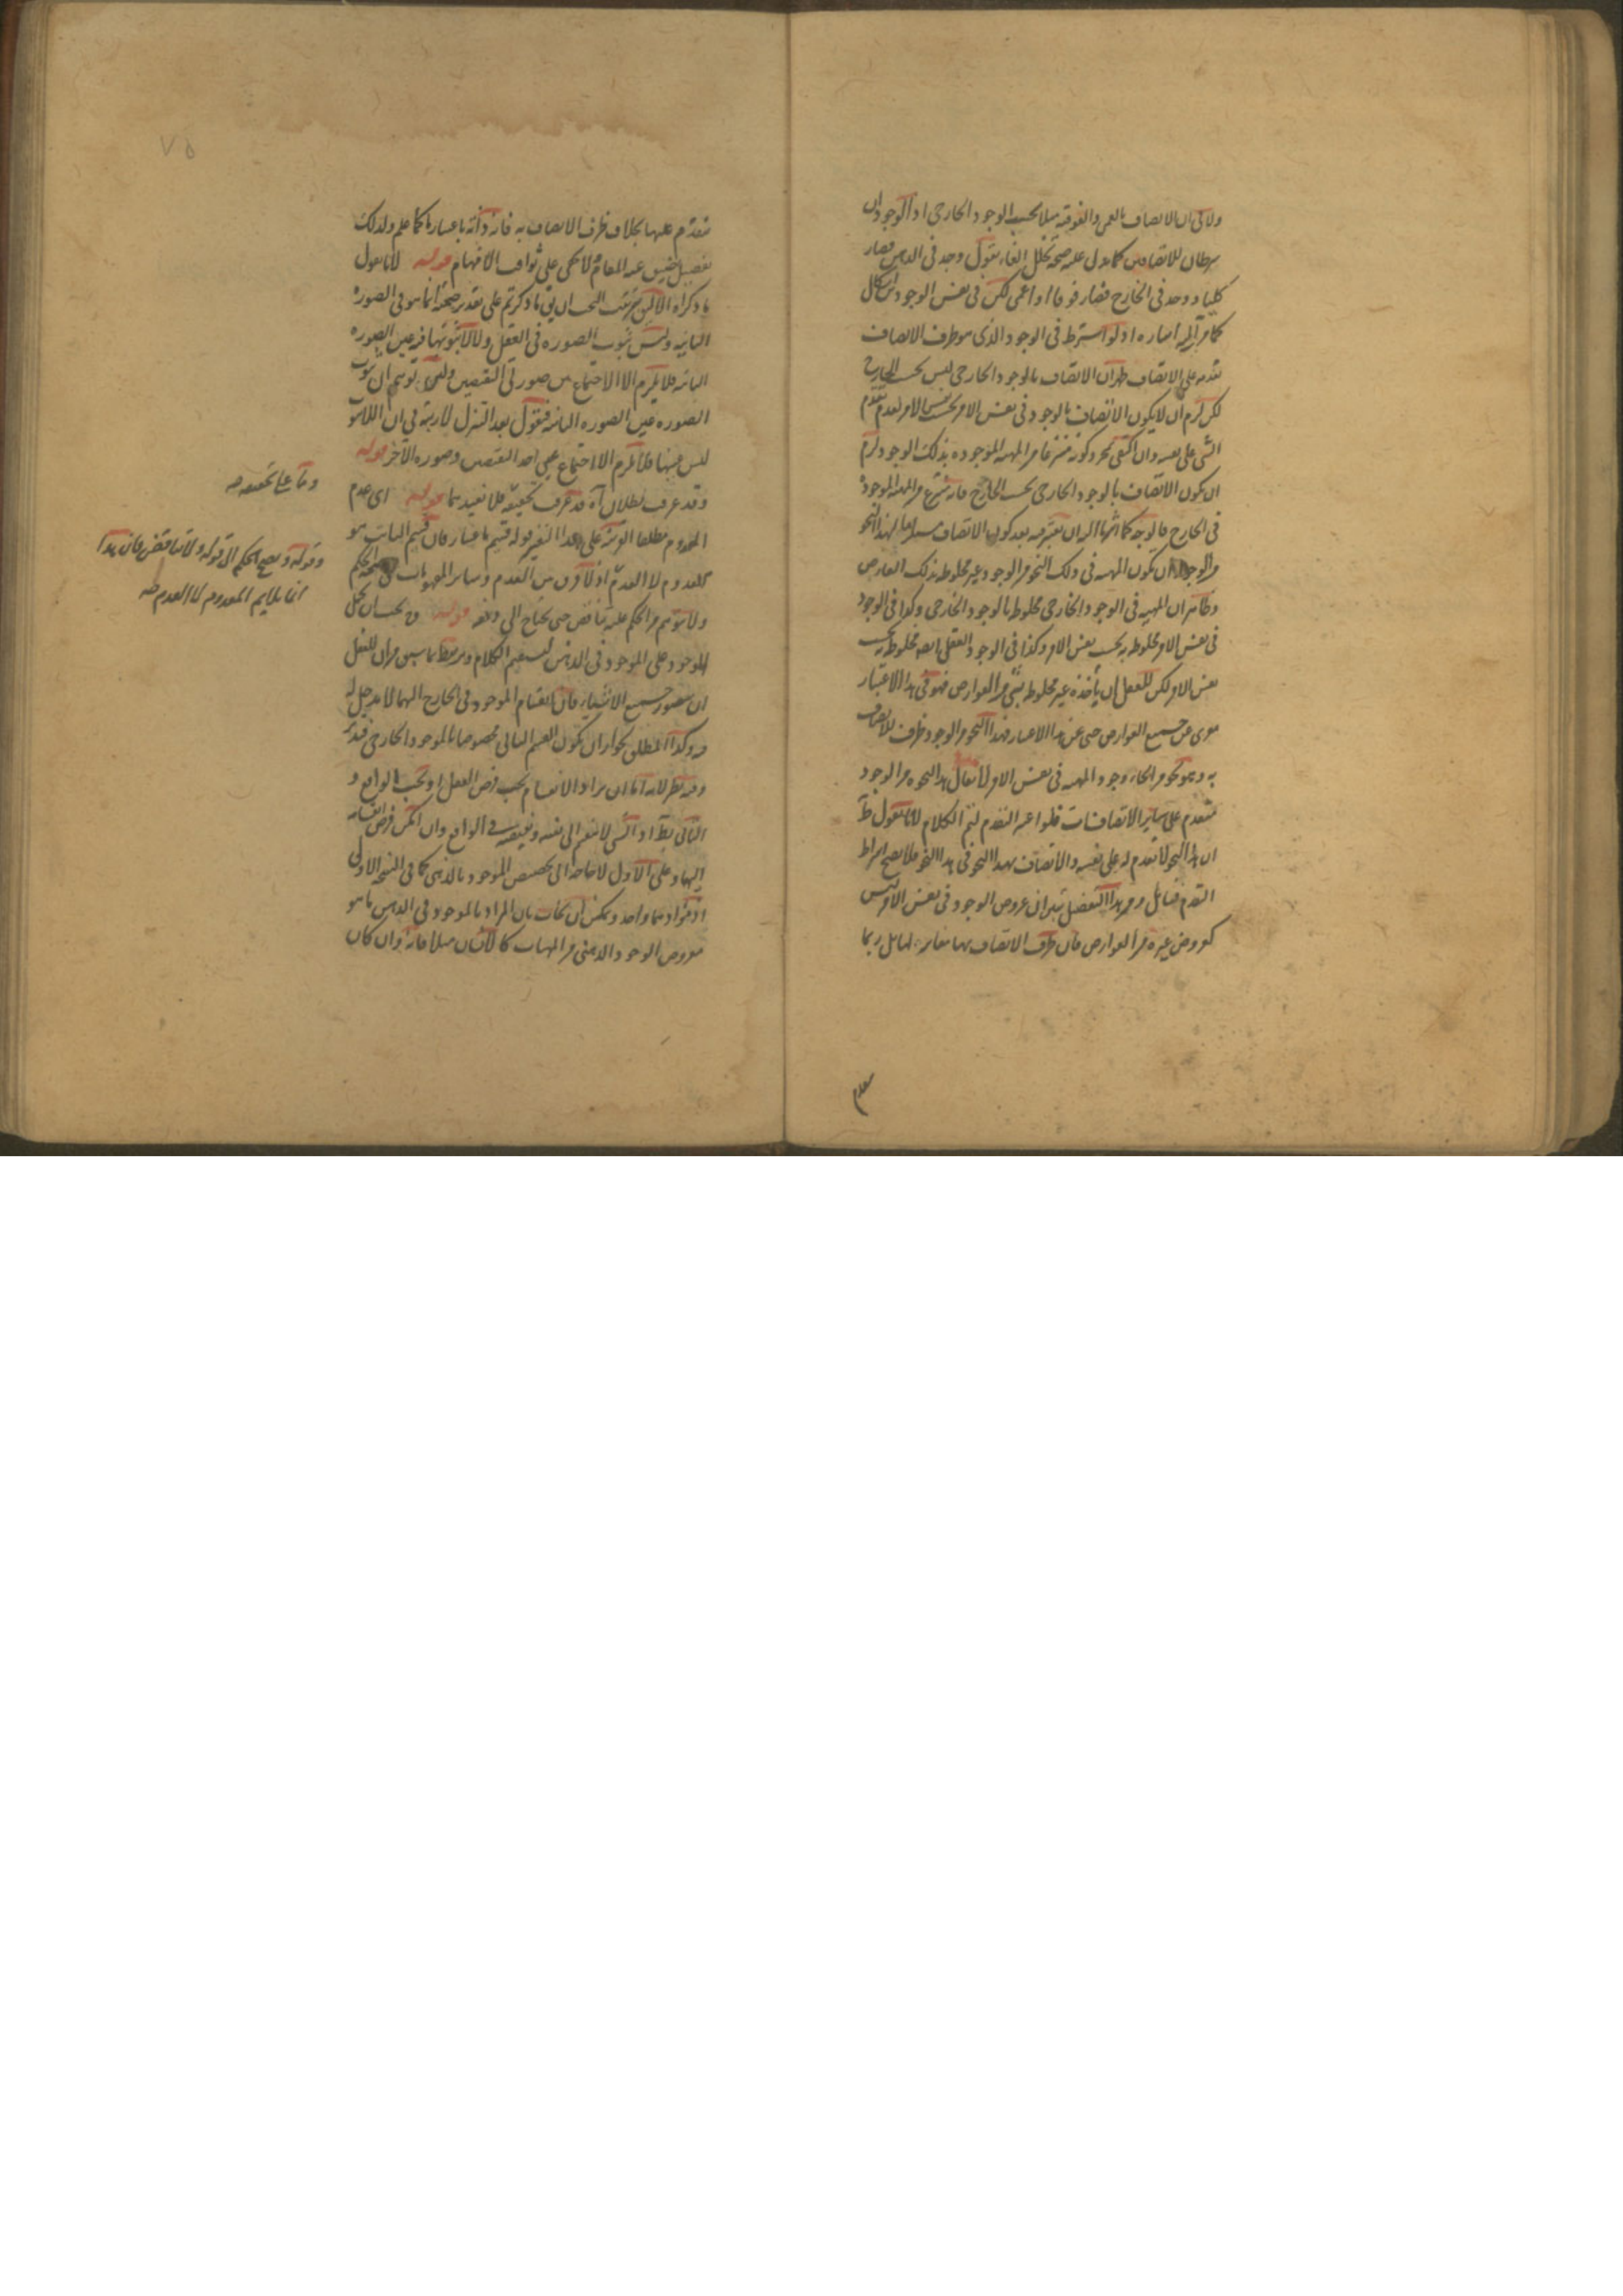 ولا في ان الاتصاف بالعمى والفوقية مثلا بحسب الوجود الخارجي اذ الوجودان
شرطان للاتصافين كما يدل عليه صحة تخلل الفاء بقول وجد في الذهن فصار
كليا ووجد في الخارج فصار فوقا او اعمى لكن في نفس الوجودين اشكال
كما مر اليه اشارة اذ لو اشترط في الوجود الذي هو ظرف الاتصاف
تقدمه على الاتصاف ظهر ان الاتصاف بالوجود الخارجي ليس بحسب الخارج
لكن لزم ان لا يكون الاتصاف بالوجود في نفس الامر بحسب نفس الامر لعدم تقدم
الشي على نفسه وان اكتفى بمجرد كونه منتزعا من المهية الموجودة بذلك الوجود لزم
ان يكون الاتصاف بالوجود الخارجي بحسب الخارج فانه ينتزع من المهية الموجودة
في الخارج فالوجه كما اشرنا اليه ان يعتبر فيه بعد كون الاتصاف لهذا النحو
من الوجود ان يكون المهية في ذلك النحو من الوجود غير مخلوط بذلك العارض
وظاهر ان المهية في الوجود الخارجي مخلوط بالوجود الخارجي وكذا في الوجود
في نفس الامر مخلوط به بحسب نفس الامر وكذا في الوجود العقلي ايضا مخلوط به بحسب
نفس الامر لكن للعقل ان يأخذه غير مخلوط بشي من العوارض فهو في هذا الاعتبار
معرى عن جميع العوارض حتى عن هذا الاعتبار فهذا النحو من الوجود ظرف للاتصاف
به وهو نحو من انحاء وجود المهية في نفس الامر لا يقال هذا النحو من الوجود
متقدم على ساير الاتصافات فلو اعتبر التقدم لتم الكلام لانا نقول
ان هذا النحو لا تقدم له على نفسه والاتصاف بهذا النحو في هذا النحو فلا يصح اشتراط
التقدم فتأمل ومن هذا التفصيل تبين ان عروض الوجود في نفس الامر ليس
كعروض غيره من العوارض فان ظرف الاتصاف بها مغاير لها بل ربما
متقدم عليها بخلاف ظرف الاتصاف به فانه ذاته باعتبار ما كما علم ولذلك
تفصيل عند المقام لا يخفى على ثواقب الافهام قوله لانا نقول
ما ذكراه الا ليق ان يقال ما ذكرتم على تقدير صحته انما هو في الصورة
الثانية وليس ثبوت الصورة في العقل ولا لا ثبوتها فيه عين الصورة
الثانية فلا يلزم الا الاجتماع بين صورتي النقيضين ولئن توهم ان ثبوت
الصورة عين الصورة الثانية فنقول بعد التنزل لا ريبة في ان اللاثبوت
ليس عينها فلا يلزم الا اجتماع عين احد النقيضين وصورة الآخر قوله
وقد عرفت بطلان آه قد عرفت تحقيقه فلا نعيده قوله اى عدم
المعدوم مطلقا القرينة على هذا التفسير قوله قسيم باعتبار فان قسيم الثابت هو
المعدوم لا العدم اذ لا فرق بين العدم وساير المفهومات في صحة الحكم
ولا يتوهم من الحكم عليه تناقض حتى يحتاج الى دفعه قوله وح يجب ان يحمل
الموجود على الموجود في الذهن ليستقيم الكلام ويرتبط بما سبق من ان للعقل
ان يتصور جميع الاشياء فان انقسام الموجود في الخارج اليهما لا مدخل له
فيه وكذا المطلق لجواز ان يكون القسم الثاني مخصوصا بالموجود الخارجي فتدبر
وفيه نظر لانه اما ان يراد الانقسام بحسب فرض العقل او بحسب الواقع و
الثاني بط اذ الشي لا ينقسم الى نفسه ونقيضه في الواقع وان امكن فرض انقسامه
اليهما وعلى الاول لا حاجة الى تخصيص الموجود بالذهني كما في النسخة الاولى
اذ مؤداهما واحد ويمكن ان يجاب بان المراد بالموجود في الذهن ما هو
معروض الوجود الذهني من المهيات كالانسان مثلا فانه وان كان
وقا على تحقيقه صه
وقوله ويصح الحكم الى قوله ولا تناقض فان هذا
انما يلايم المعدوم لا العدم صه
٧٥